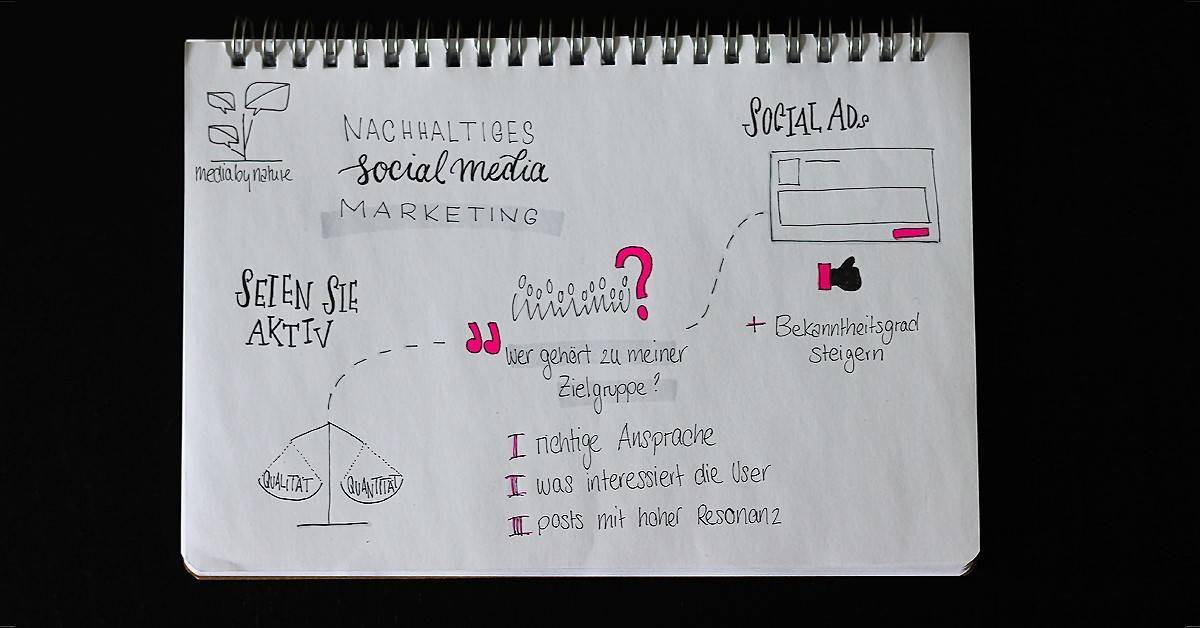 mediabynature
NACHHALTIGES
social media
MARKETING
SEIEN SIE
AKTIV
QUALITÄT
QUANTITÄT
?
Wer gehört zu meiner
Zielgruppe?
I richtige Ansprache
II was interessiert die User
III posts mit hoher Resonanz
SOCIAL ADs
+ Bekanntheitsgrad
steigern